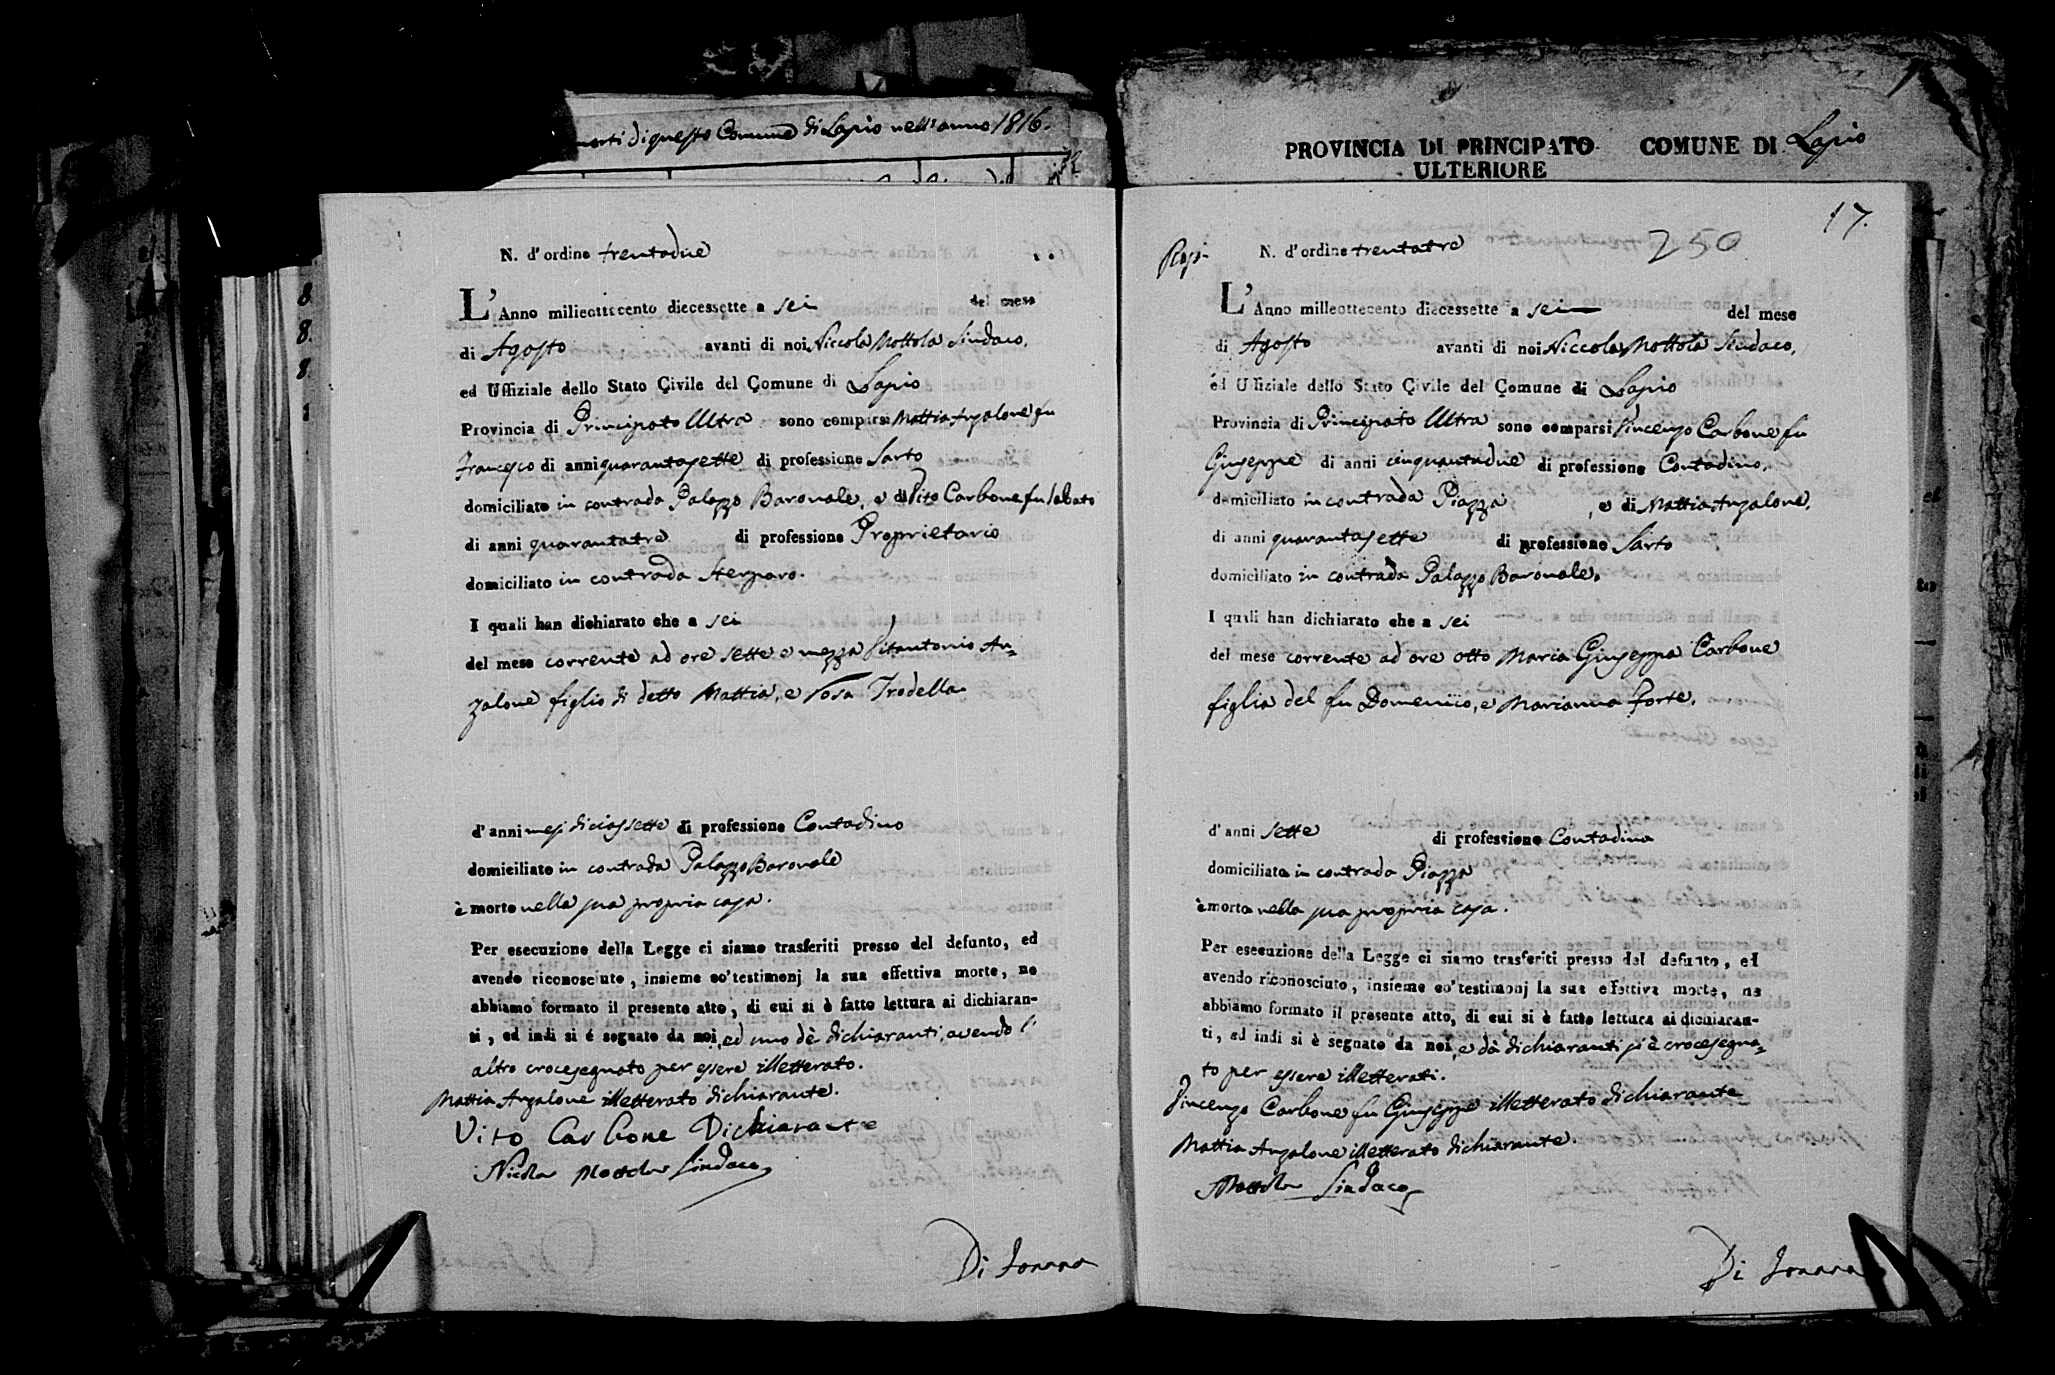 morti di questo Comune di Lapio nell'anno 1816.
PROVINCIA DI PRINCIPATO ULTERIORE COMUNE DI Lapio
N. d'ordine trentadue
L'Anno milleottocento diecessette a sei del mese
di Agosto avanti di noi Niccola Mottola Sindaco,
ed Uffiziale dello Stato Civile del Comune di Lapio
Provincia di Principato Ultra sono comparsi Mattia Anzalone fu
Francesco di anni quarantasette di professione Sarto
domiciliato in contrada Palazzo Baronale, e di Vito Carbone fu Sabato
di anni quarantatre di professione Proprietario
domiciliato in contrada Sterparo.
I quali han dichiarato che a sei
del mese corrente ad ore sette e mezza Vitantonio An=
zalone figlio di detto Mattia, e Rosa Trodella
d'anni mesi diciassette di professione Contadino
domiciliato in contrada Palazzo Baronale
è morto nella sua propria casa.
Per esecuzione della Legge ci siamo trasferiti presso del defunto, ed
avendo riconosciuto, insieme co' testimonj la sua effettiva morte, ne
abbiamo formato il presente atto, di cui si è fatto lettura ai dichiaran-
ti, ed indi si è segnato da noi, ed uno de dichiaranti, avendo l'
altro crocesegnato per essere illetterato.
Mattia Anzalone illetterato dichiarante.
Vito Carbone Dichiarante
Nicola Mottola Sindaco
Di Ionna
17.
250
N. d'ordine trentatre
L'Anno milleottocento diecessette a sei del mese
di Agosto avanti di noi Niccola Mottola Sindaco,
ed Uffiziale dello Stato Civile del Comune di Lapio
Provincia di Principato Ultra sono comparsi Vincenzo Carbone fu
Giuseppe di anni cinquantadue di professione Contadino,
domiciliato in contrada Piazza, e di Mattia Anzalone,
di anni quarantasette di professione Sarto
domiciliato in contrada Palazzo Baronale.
I quali han dichiarato che a sei
del mese corrente ad ore otto Maria Giuseppa Carbone
figlia del fu Domenico, e Marianna Forte.
d'anni sette di professione Contadina
domiciliata in contrada Piazza
è morta nella sua propria casa.
Per esecuzione della Legge ci siamo trasferiti presso del defunto, ed
avendo riconosciuto, insieme co' testimonj la sua effettiva morte, ne
abbiamo formato il presente atto, di cui si è fatto lettura ai dichiaran-
ti, ed indi si è segnato da noi, e da dichiaranti si è crocesegna=
to per essere illetterati.
Vincenzo Carbone fu Giuseppe illetterato dichiarante
Mattia Anzalone illetterato dichiarante.
Mottola Sindaco
Di Ionna